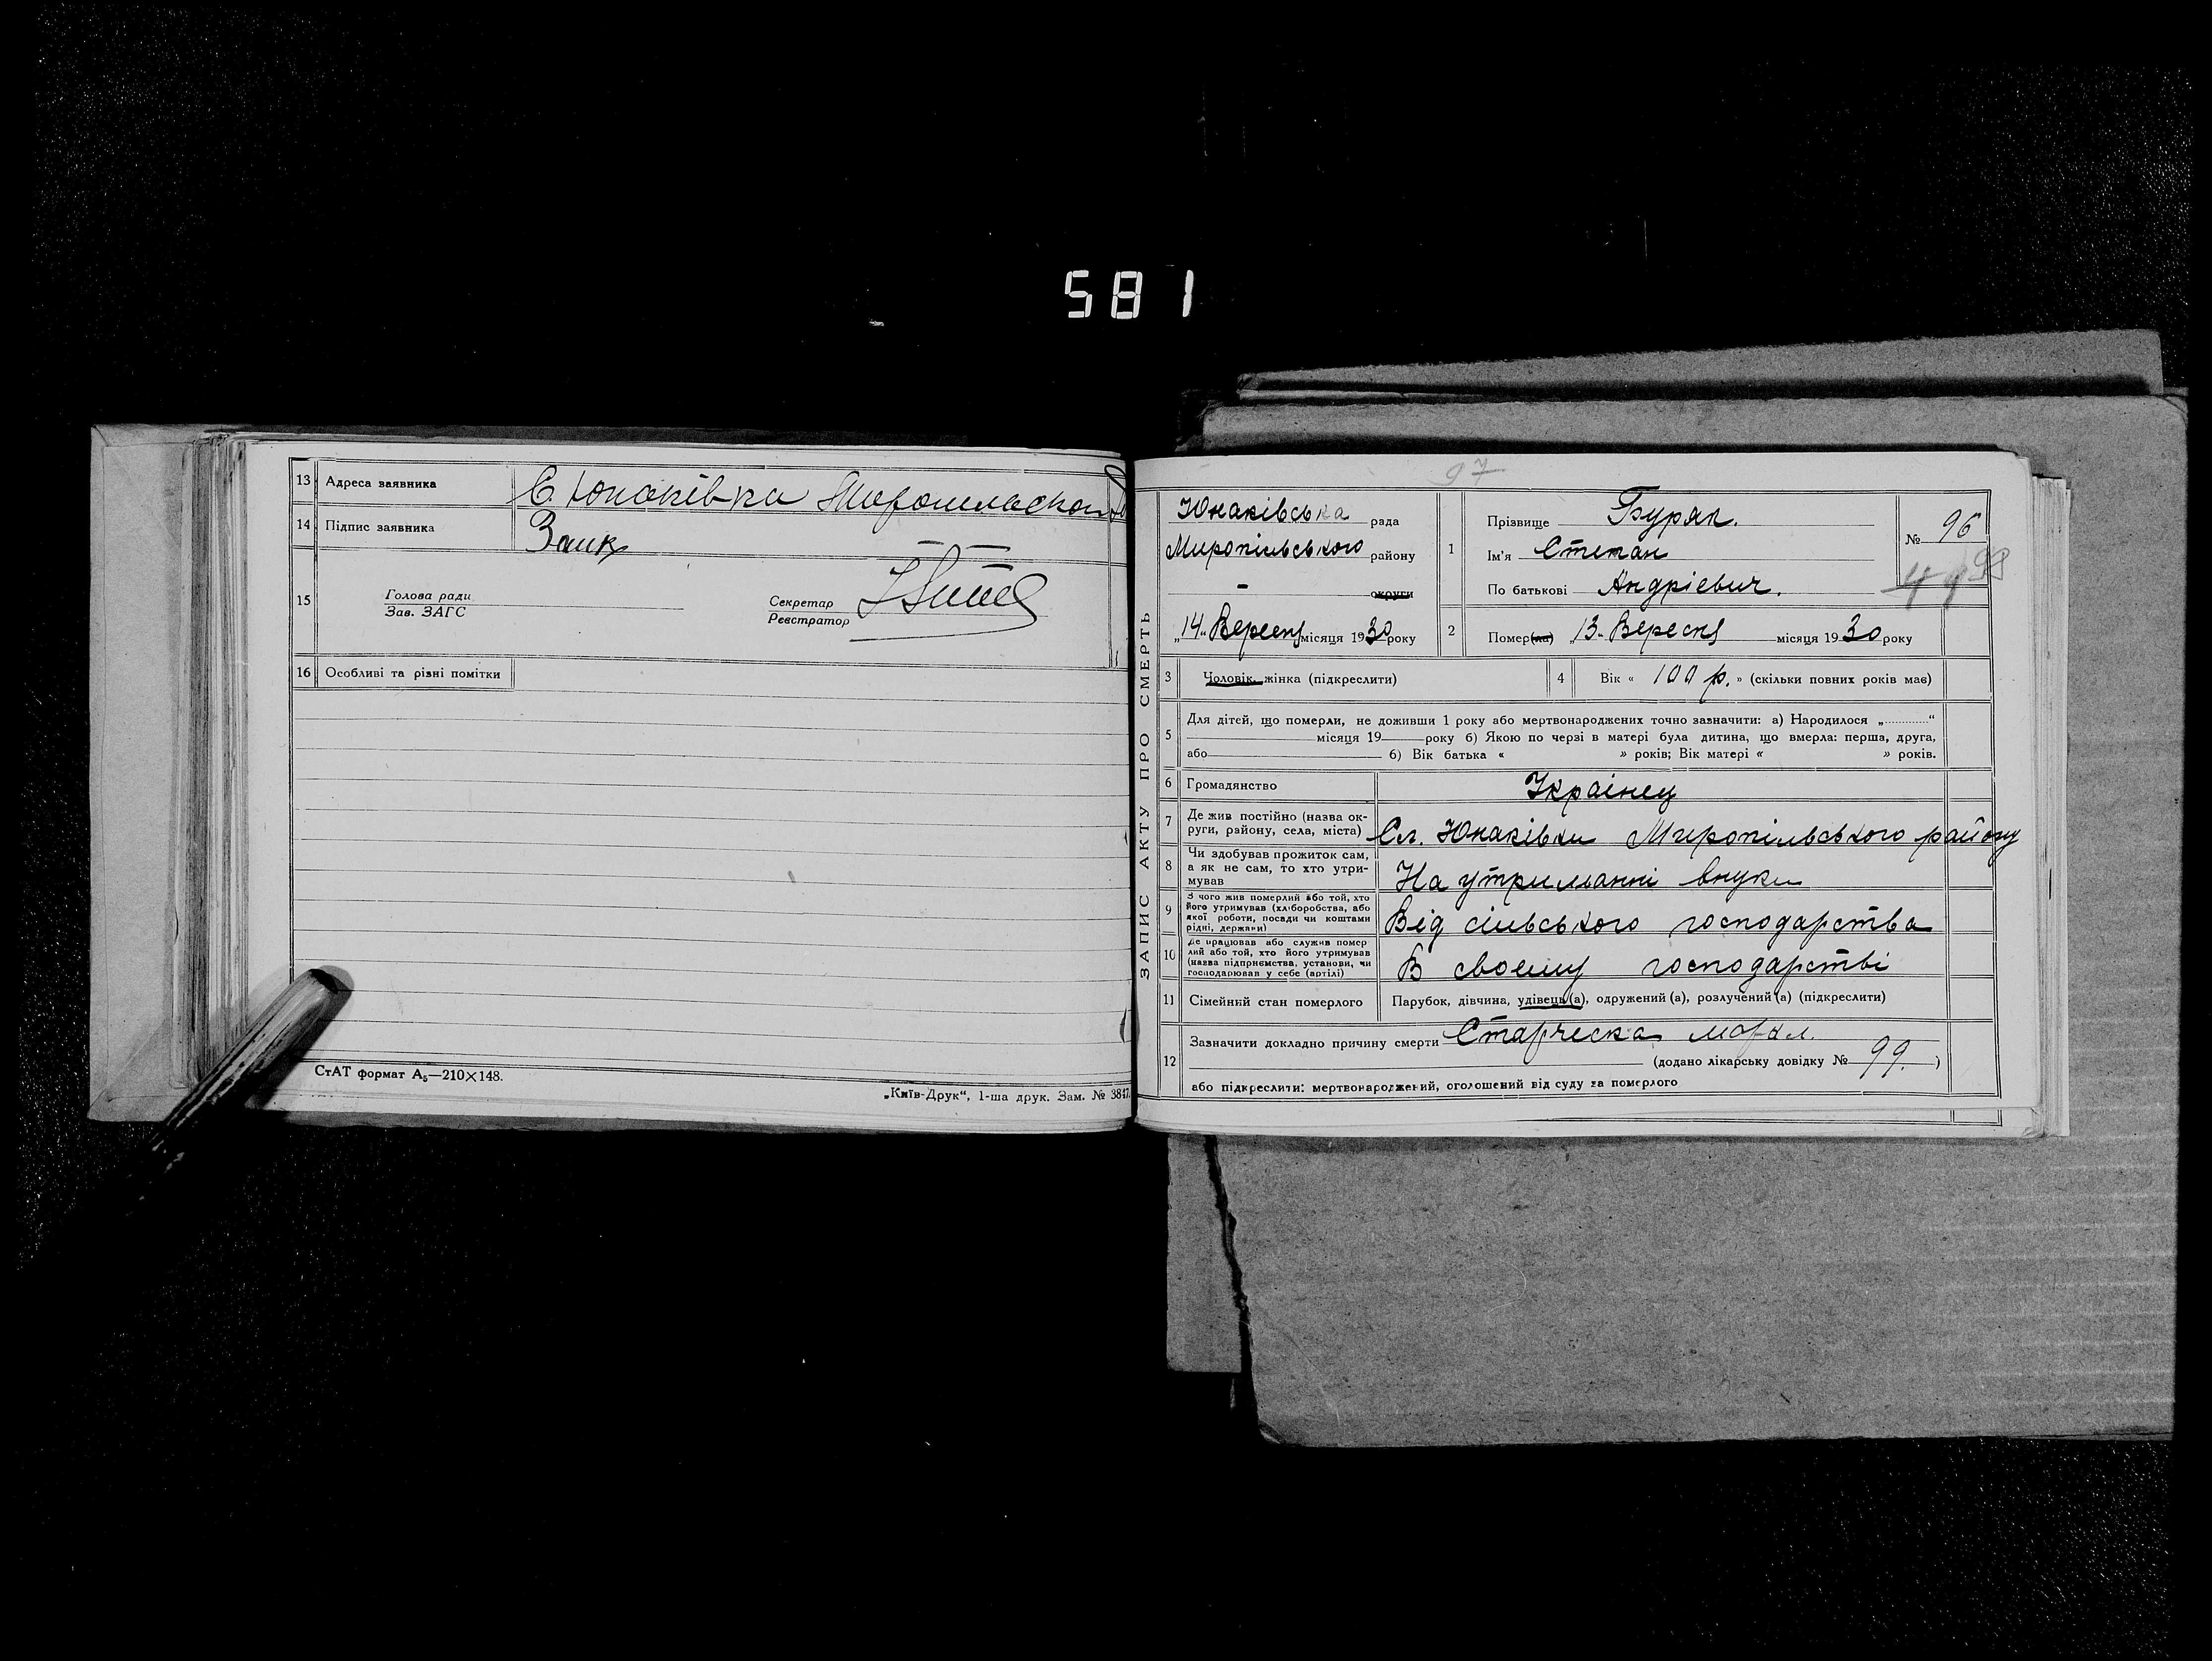 581
13 Адреса заявника С. Юнаківка
14 Підпис заявника Заик
15 Голова ради
Зав. ЗАГС
Секретар
Реєстратор
16 Особливі та різні помітки
СтАТ формат А5—210×148.
„Київ-Друк“, 1-ша друк. Зам. № 3847.
97
ЗАПИС АКТУ ПРО СМЕРТЬ
Юнаківська рада
Миропільського району
– округи
„14“ Вересня місяця 1930 року
1 Прізвище Буряк.
Ім'я Степан
По батькові Андрієвич.
№ 96
98
2 Помер(ла) „13“ Вересня місяця 1930 року
3 Чоловік, жінка (підкреслити)
4 Вік « 100 р. » (скільки повних років має)
5 Для дітей, що померли, не доживши 1 року або мертвонароджених точно зазначити: а) Народилося „............“
місяця 19 року б) Якою по черзі в матері була дитина, що вмерла: перша, друга,
або б) Вік батька « » років; Вік матері « » років.
6 Громадянство Украінец
7 Де жив постійно (назва ок-
руги, району, села, міста) Сл. Юнаківки Миропільського району
8 Чи здобував прожиток сам,
а як не сам, то хто утри-
мував На утриманні внуки
9 З чого жив померлий або той, хто
його утримував (хліборобства, або
якої роботи, посади чи коштами
рідні, держави) Від сільського господарства
10 Де працював або служив помер
лий або той, хто його утримував
(назва підприємства, установи, чи
господарював у себе (артілі) В своему господарстві
11 Сімейний стан померлого Парубок, дівчина, удівець(а), одружений(а), розлучений(а) (підкреслити)
12 Зазначити докладно причину смерти Старческа
(додано лікарську довідку № 99.)
або підкреслити: мертвонароджений, оголошений від суду за померлого